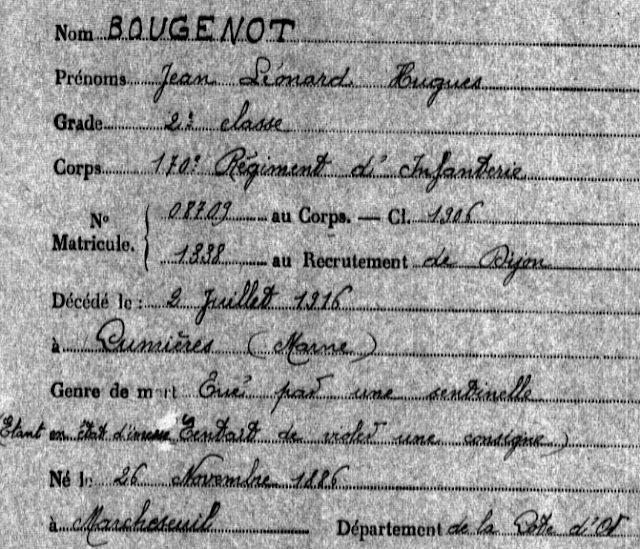 Nom BOUGENOT
Prénoms Jean Léonard Hugues
Grade 2e classe
Corps 170e Régiment d'Infanterie
N° Matricule. 08709 au Corps. — Cl. 1906
1338 au Recrutement de Dijon
Décédé le : 2 Juillet 1916
à Cumières (Marne)
Genre de mort Tué par une sentinelle
(Étant en état d'ivresse Tentait de violer une consigne)
Né le 26 Novembre 1886
à Marcheseuil Département de la Côte d'Or